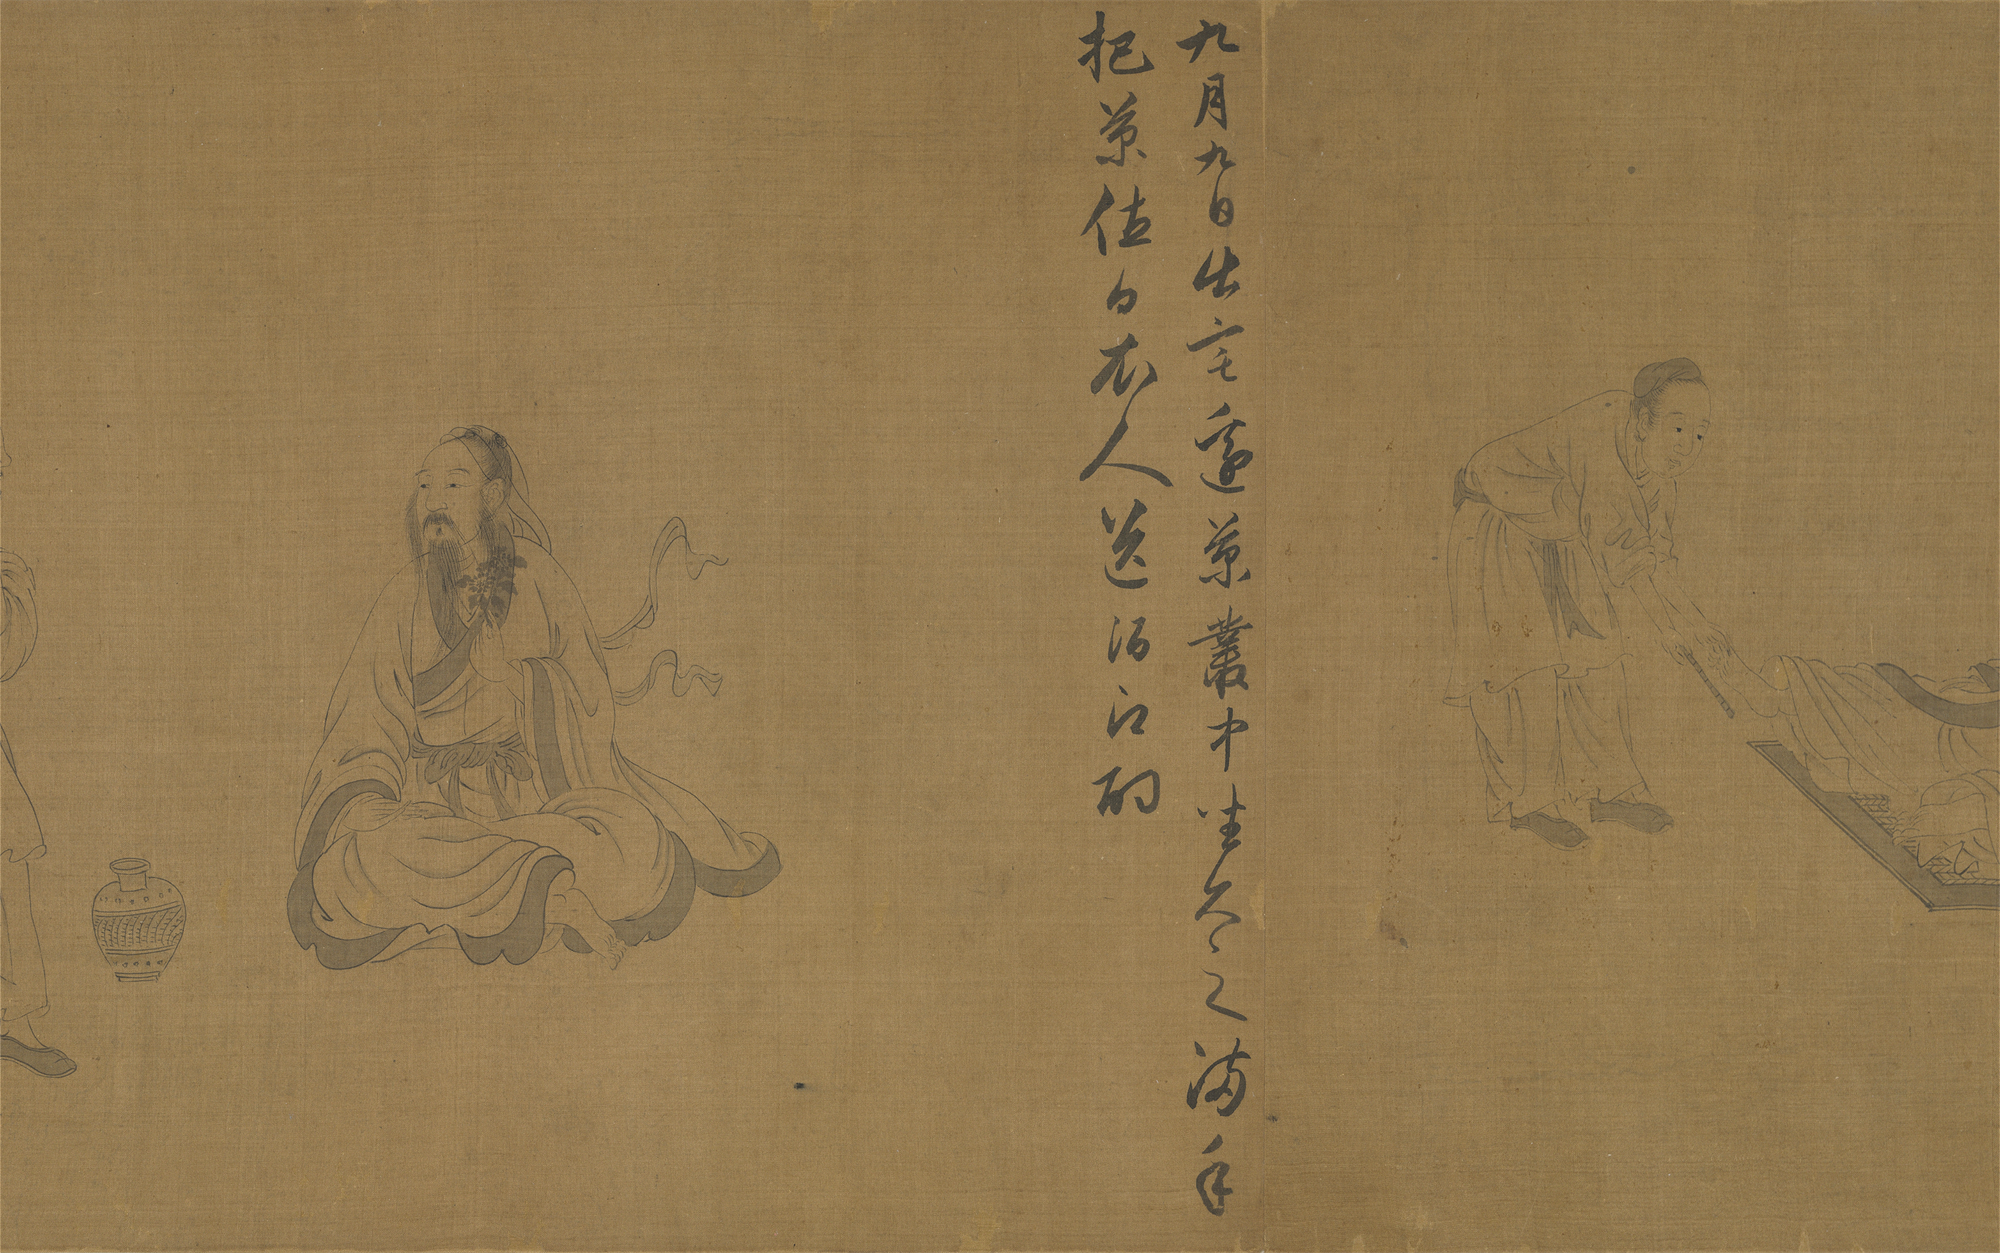 九月九日出宅邊菊叢中坐久之滿手
把菊值白衣人送酒酌